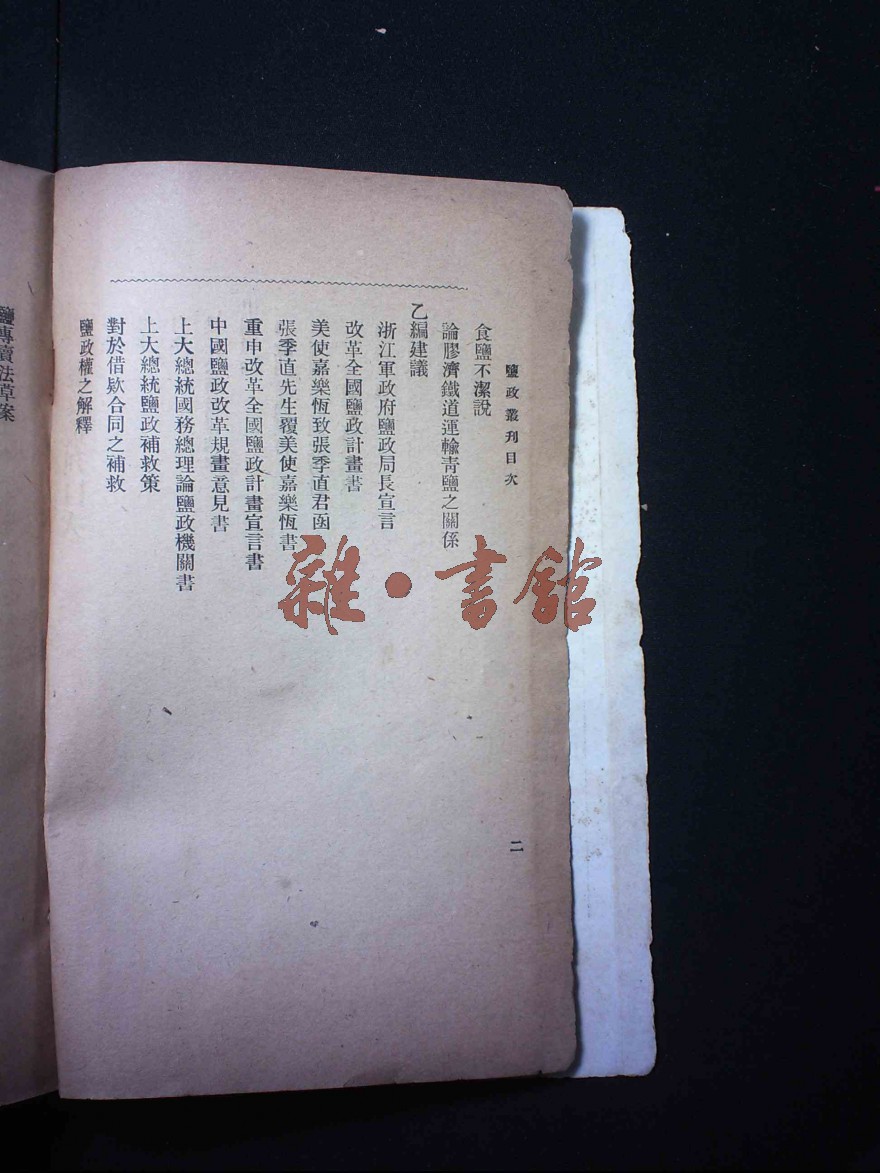 鹽政叢刊目次
二
食鹽不潔說
論膠濟鐵道運輸青鹽之關係
乙編建議
浙江軍政府鹽政局長宣言
改革全國鹽政計畫書
美使嘉樂恆致張季直君函
張季直先生覆美使嘉樂恆書
重申改革全國鹽政計畫宣言書
中國鹽政改革規畫意見書
上大總統國務總理論鹽政機關書
上大總統鹽政補救策
對於借欵合同之補救
鹽政權之解釋
鹽專賣法草案
雜·書館